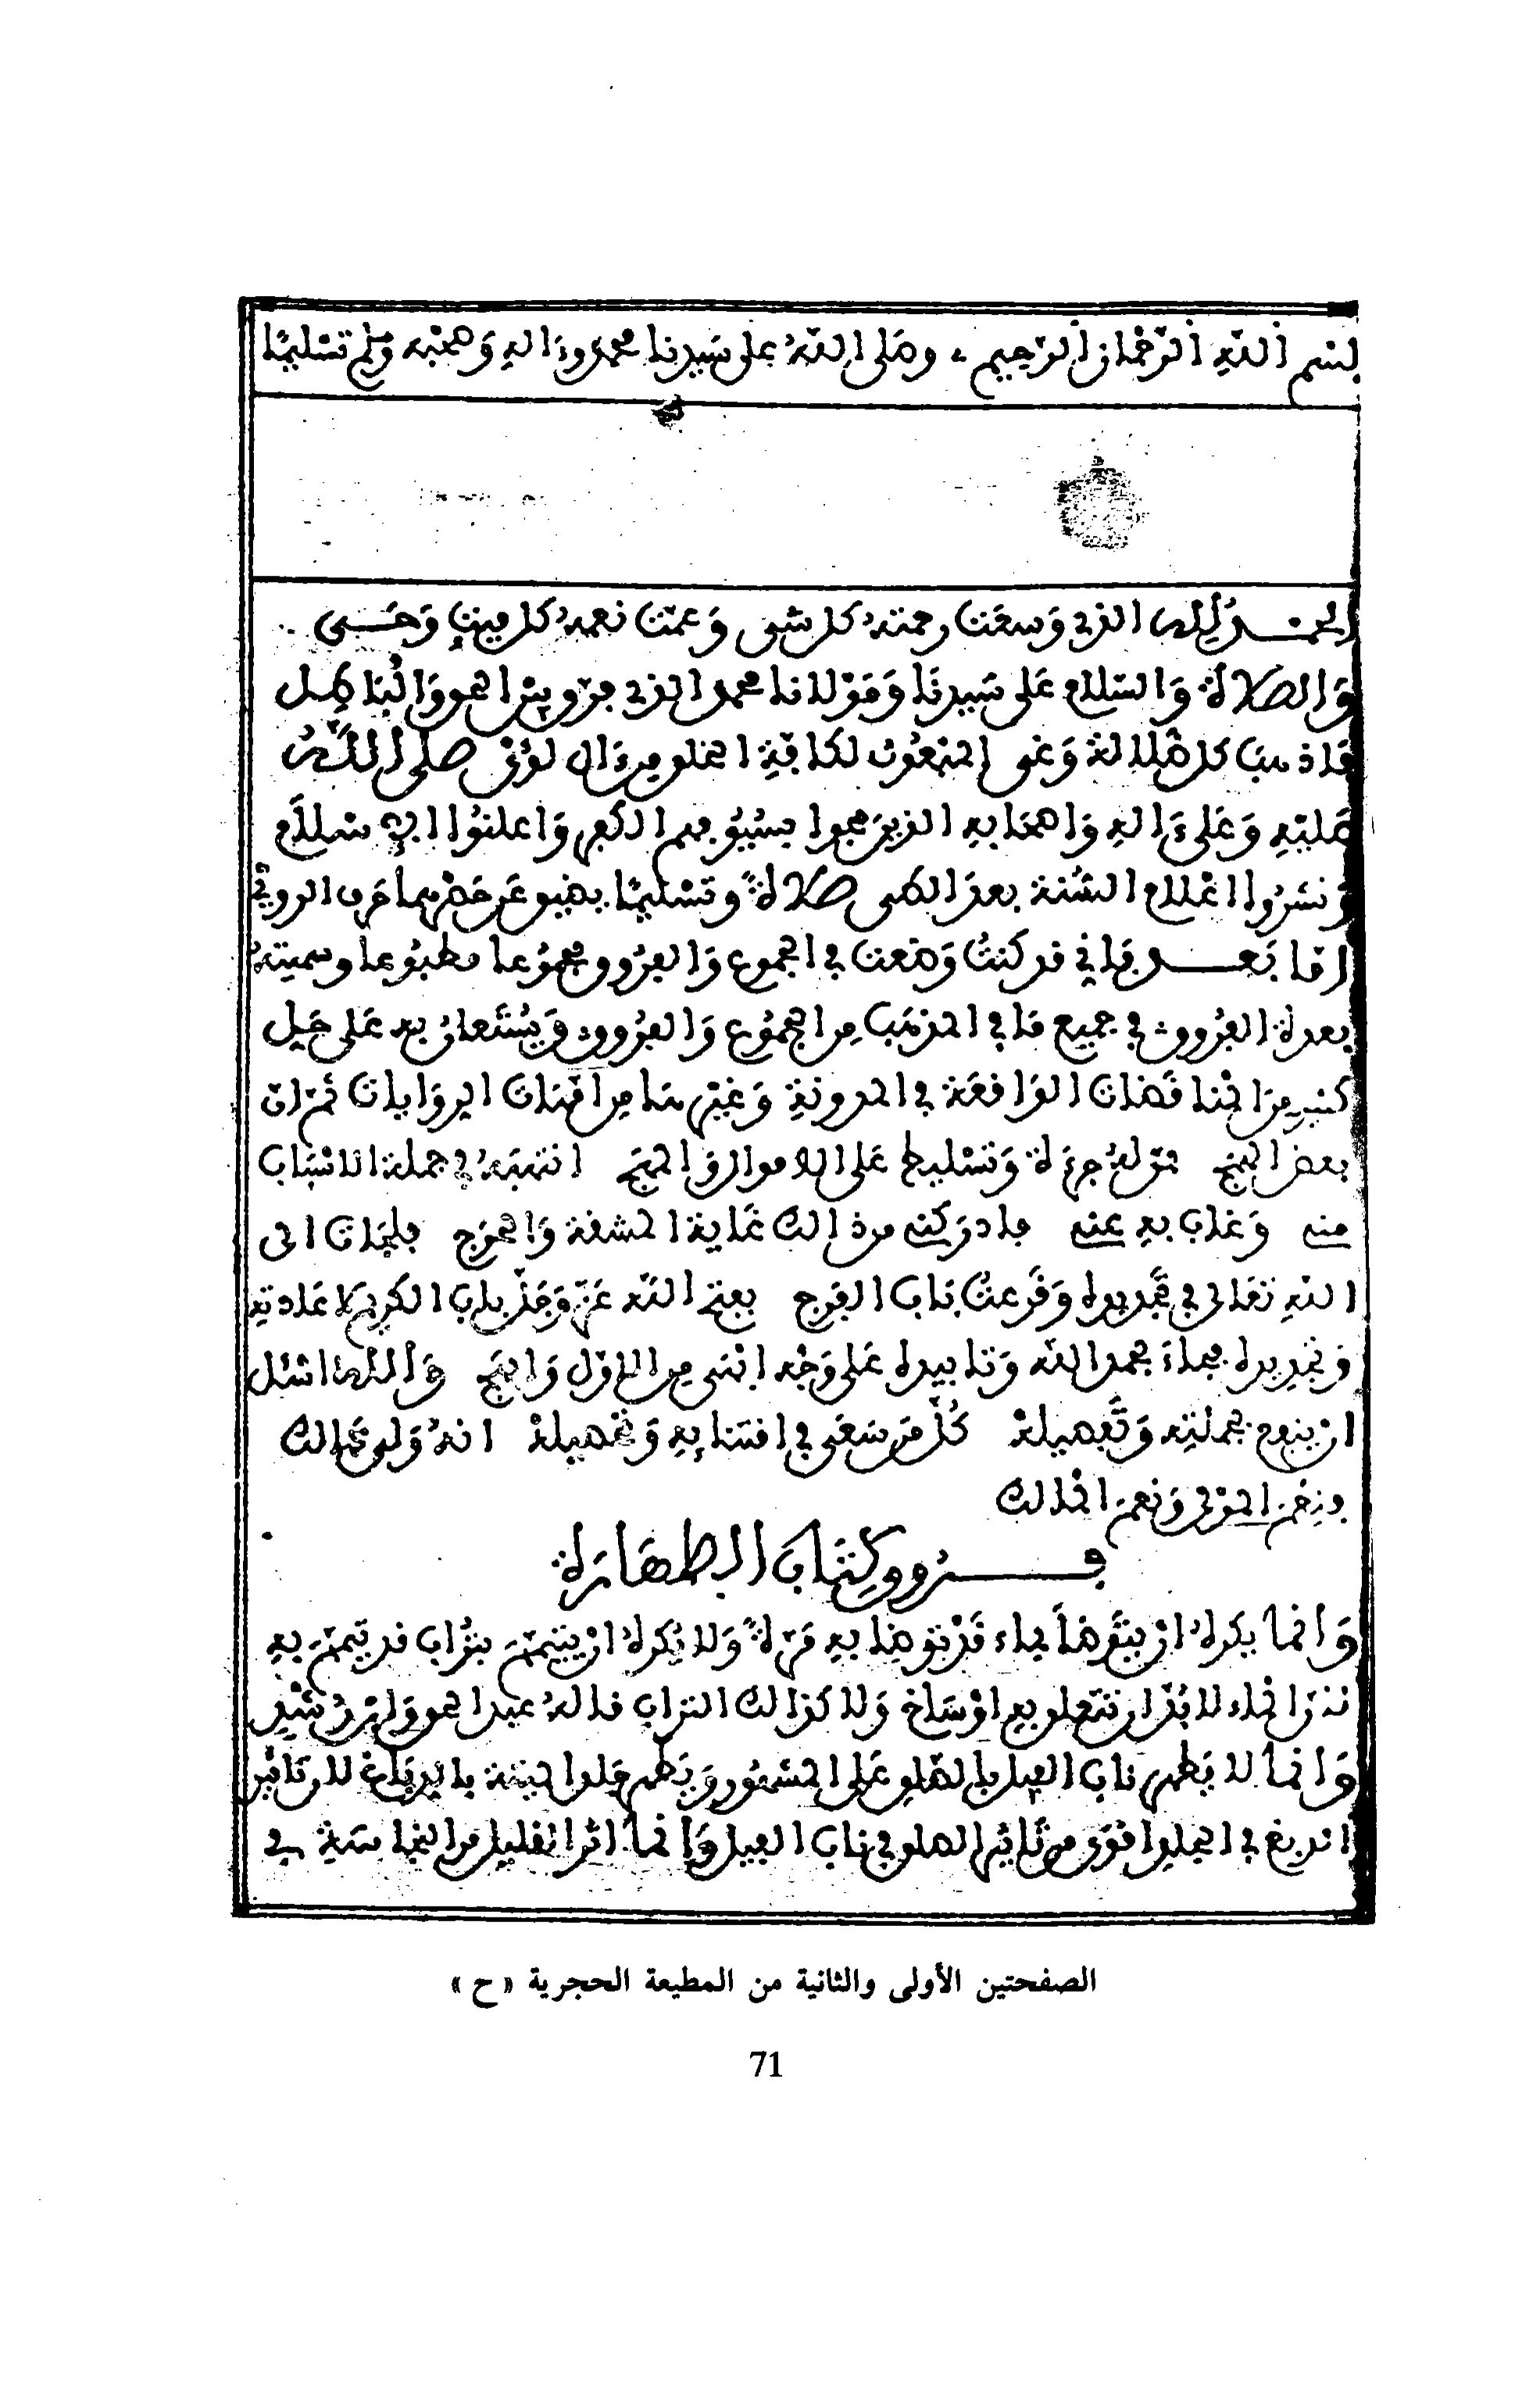 بسم الله الرحمان الرحيم وصلى الله على سيدنا محمد وءاله وصحبه وسلم تسليما
الحمد لله الذي وسعت رحمته كل شيء وعمت نعمه كل ميت وحي
والصلاة والسلام على سيدنا ومولانا محمد الذي فرق بين الحق والباطل
كل ضلالة المبعوث لكافة الخلق من دان صلى الله
عليه وعلى ءاله وأصحابه الذين محوا بسيوفهم الكفر وأعلنوا الإسلام
ونشروا أعلام السنة بعد الطي صلاة وتسليما يضيق عن حصرهما حرف الروي
أما بعد فإني قد كنت وضعت في الجموع والفروق مجموعا مطبوعا وسميته
بعدة الفروق في جميع ما في المذهب من الجموع والفروق ويستعان به على حل
كثير من المناقضات الواقعة في المدونة وغيرها من أمهات الروايات ثم ان
بعض الهمج ممن له جرءة وتسليط على الاموال والمهج انتهبه في جملة الاسباب
منه وغاب به عنه فادركني من ذالك غاية المشقة والحرج فلجأت الى
الله تعالى في تجديده وقرعت باب الفرج بفتح الله عز وجل باب الكريم لاعادته
وتجديده فجاء بحمد الله وتاييده على وجه اسنى من الاول وابهج والله اسئل
ان ينفع بجملته وتفصيله كل من سعى في اقتنائه وتحصيله انه ولي ذالك
ونعم المولى ونعم المالك
فروق كتاب الطهارة
وانما يكره ان يتوضأ بماء قد توضئ به مرة ولا يكره ان يتيمم بتراب قد تيمم به
لان الماء لا بد ان تتعلق به اوساخ ولا كذالك التراب قاله عبد الحق وابن رشد
وانما لا يطهر ناب الفيل بالصلق على المشهور ويطهر جلد الميتة بالدباغ لان تاثير
الدبغ في الجلد اقوى من تاثير الصلق في ناب الفيل وانما اثر القليل من النجاسة في
الصفحتين الأولى والثانية من المطبعة الحجرية «ح»
71